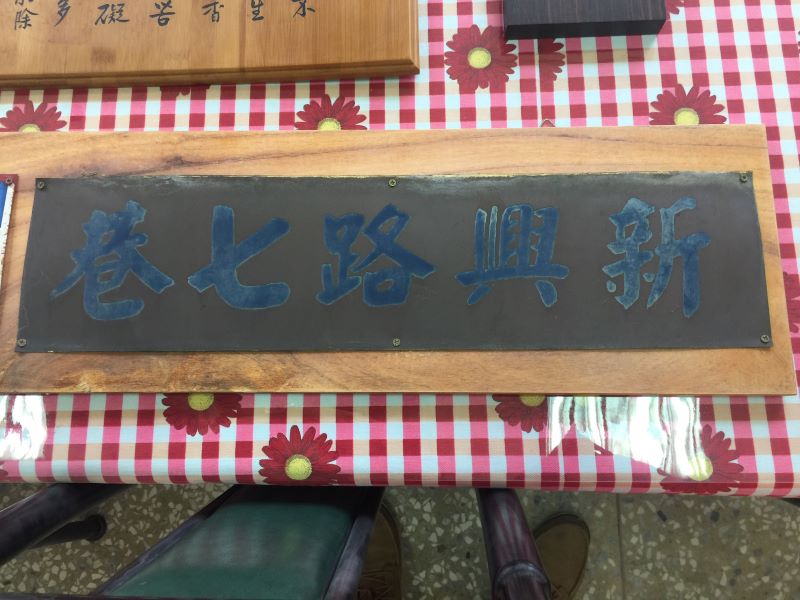 生
香
苦
礙
多
除
新興路七巷